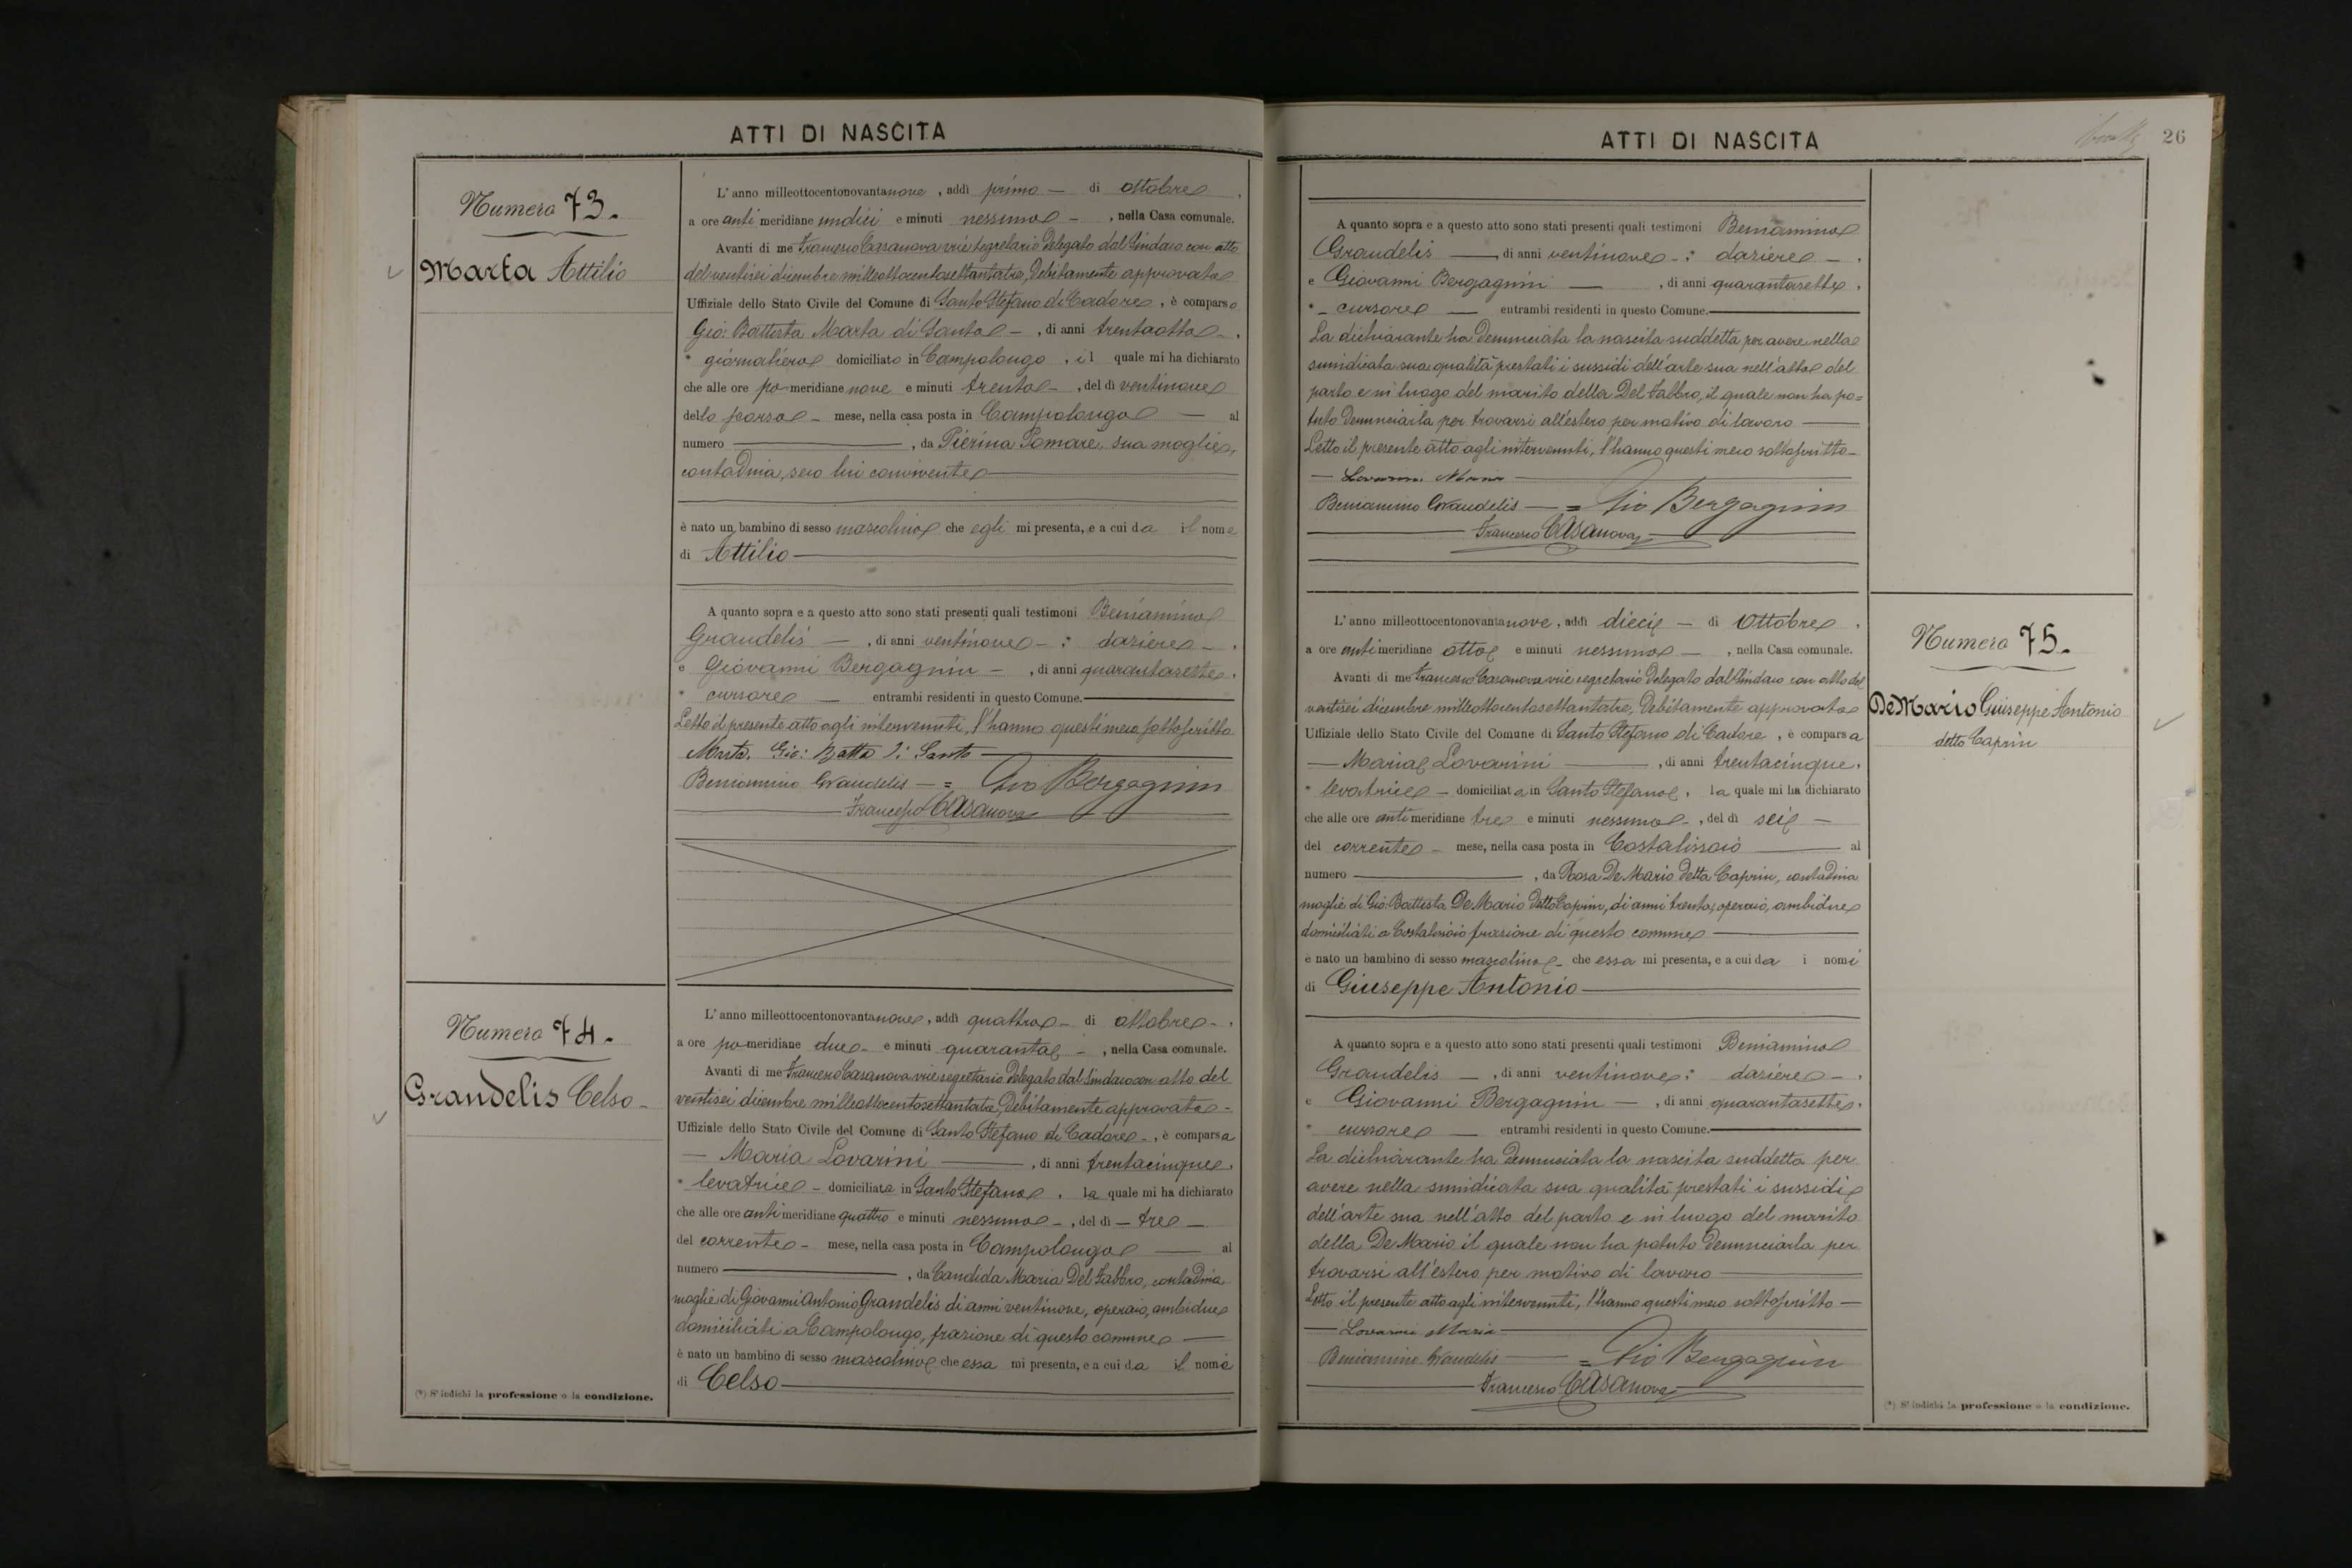 ATTI DI NASCITA
Numero 73.
Marta Attilio
L'anno milleottocentonovantanove, addì primo — di ottobre,
a ore antimeridiane undici e minuti nessuno —, nella Casa comunale.
Avanti di me Francesco Casanova vice segretario delegato dal Sindaco con atto
del ventisei dicembre milleottocentosettantatre, debitamente approvato
Uffiziale dello Stato Civile del Comune di Santo Stefano di Cadore, è comparso
Gio: Battista Marta di Santo —, di anni trentaotto —,
* giornaliero domiciliato in Campolongo, il quale mi ha dichiarato
che alle ore pomeridiane nove e minuti trenta —, del dì ventinove
dello scorso — mese, nella casa posta in Campolongo — al
numero —, da Pierina Pomarè sua moglie,
contadina, seco lui convivente —
è nato un bambino di sesso mascolino che egli mi presenta, e a cui da il nome
di Attilio —
A quanto sopra e a questo atto sono stati presenti quali testimoni Beniamino
Grandelis —, di anni ventinove —: daziere —,
e Giovanni Bergagnin —, di anni quarantasette,
* cursore — entrambi residenti in questo Comune. —
Letto il presente atto agli intervenuti, l'hanno questi meco sottoscritto
Marta. Gio: Batta di Santo —
Beniamino Grandelis — = Gio Bergagnin
— Francesco Casanova
Numero 74.
Grandelis Celso —
L'anno milleottocentonovantanove, addì quattro — di ottobre —,
a ore pomeridiane due — e minuti quaranta —, nella Casa comunale.
Avanti di me Francesco Casanova vice segretario delegato dal Sindaco con atto del
ventisei dicembre milleottocentosettantatre, debitamente approvato —
Uffiziale dello Stato Civile del Comune di Santo Stefano di Cadore —, è comparsa
— Maria Lovarini —, di anni trentacinque,
* levatrice — domiciliata in Santo Stefano, la quale mi ha dichiarato
che alle ore antimeridiane quattro e minuti nessuno —, del dì — tre —
del corrente — mese, nella casa posta in Campolongo — al
numero —, da Candida Maria Del Fabbro, contadina
moglie di Giovanni Antonio Grandelis di anni ventinove, operaio, ambidue
domiciliati a Campolongo, frazione di questo comune —
è nato un bambino di sesso mascolino che essa mi presenta, e a cui da il nome
di Celso —
(*) Si indichi la professione o la condizione.
ATTI DI NASCITA
26
A quanto sopra e a questo atto sono stati presenti quali testimoni Beniamino
Grandelis —, di anni ventinove —: daziere —,
e Giovanni Bergagnin —, di anni quarantasette,
* — cursore — entrambi residenti in questo Comune. —
La dichiarante ha denunciata la nascita suddetta per avere nella
sunidicata sua qualità prestati i sussidi dell'arte sua nell'atto del
parto e in luogo del marito della Del Fabbro, il quale non ha po=
tuto denunciarla per trovarsi all'estero per motivo di lavoro —
Letto il presente atto agli intervenuti, l'hanno questi meco sottoscritto —
— Lovarini Maria —
Beniamino Grandelis — = Gio Bergagnin
— Francesco Casanova —
L'anno milleottocentonovantanove, addì dieci — di Ottobre,
a ore antimeridiane otto e minuti nessuno —, nella Casa comunale.
Avanti di me Francesco Casanova vice segretario delegato dal Sindaco con atto del
ventisei dicembre milleottocentosettantatre, debitamente approvato
Uffiziale dello Stato Civile del Comune di Santo Stefano di Cadore, è comparsa
— Maria Lovarini —, di anni trentacinque,
* levatrice — domiciliata in Santo Stefano, la quale mi ha dichiarato
che alle ore antimeridiane tre e minuti nessuno —, del dì sei —
del corrente — mese, nella casa posta in Costalissoio — al
numero —, da Rosa De Mario detta Caprin, contadina
moglie di Gio: Battista De Mario detto Caprin, di anni trenta, operaio, ambidue
domiciliati a Costalissoio frazione di questo comune —
è nato un bambino di sesso mascolino — che essa mi presenta, e a cui da i nomi
di Giuseppe Antonio —
A quanto sopra e a questo atto sono stati presenti quali testimoni Beniamino
Grandelis —, di anni ventinove: daziere —,
e Giovanni Bergagnin —, di anni quarantasette,
* cursore — entrambi residenti in questo Comune. —
La dichiarante ha denunciata la nascita suddetta per
avere nella sunidicata sua qualità prestati i sussidi
dell'arte sua nell'atto del parto e in luogo del marito
della De Mario il quale non ha potuto denunciarla per
trovarsi all'estero per motivo di lavoro —
Letto il presente atto agli intervenuti, l'hanno questi meco sottoscritto —
— Lovarini Maria —
Beniamino Grandelis — = Gio Bergagnin
— Francesco Casanova —
Numero 75.
De Mario Giuseppe Antonio
detto Caprin
(*) Si indichi la professione o la condizione.